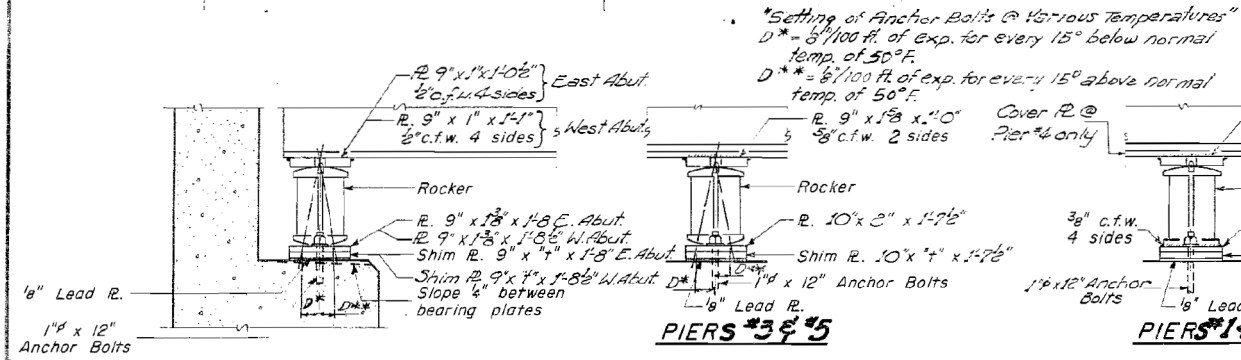 "Setting of Anchor Bolts @ Various Temperatures"
D* = 1/8"/100 ft. of exp. for every 15° below normal
temp. of 50°F.
D** = 1/8"/100 ft. of exp. for every 15° above normal
temp. of 50°F.
PL 9" x 1" x 1'-0 1/2"
1/2" c.f.w. 4 sides } East Abut.
PL. 9" x 1" x 1'-1"
1/2" c.f.w. 4 sides } West Abut.
Rocker
PL. 9" x 1 3/8" x 1'-8 E. Abut.
PL 9" x 1 3/8" x 1'-8 1/2" W. Abut.
Shim PL. 9" x "t" x 1'-8" E. Abut.
Shim PL. 9" x "t" x 1'-8 1/2" W. Abut.
Slope 1/4" between
bearing plates
D*
D**
1/8" Lead PL.
1"ø x 12"
Anchor Bolts
PL. 9" x 1 5/8 x 1'-0"
5/8" c.f.w. 2 sides
Rocker
PL. 10" x 2" x 1'-7 1/2"
Shim PL. 10" x "t" x 1'-7 1/2"
D*
D**
1"ø x 12" Anchor Bolts
1/8" Lead PL.
PIERS #3 & #5
Cover PL @
Pier #4 only
3/8" c.f.w.
4 sides
1"ø x 12" Anchor
Bolts
1/8" Lead
PIERS #1